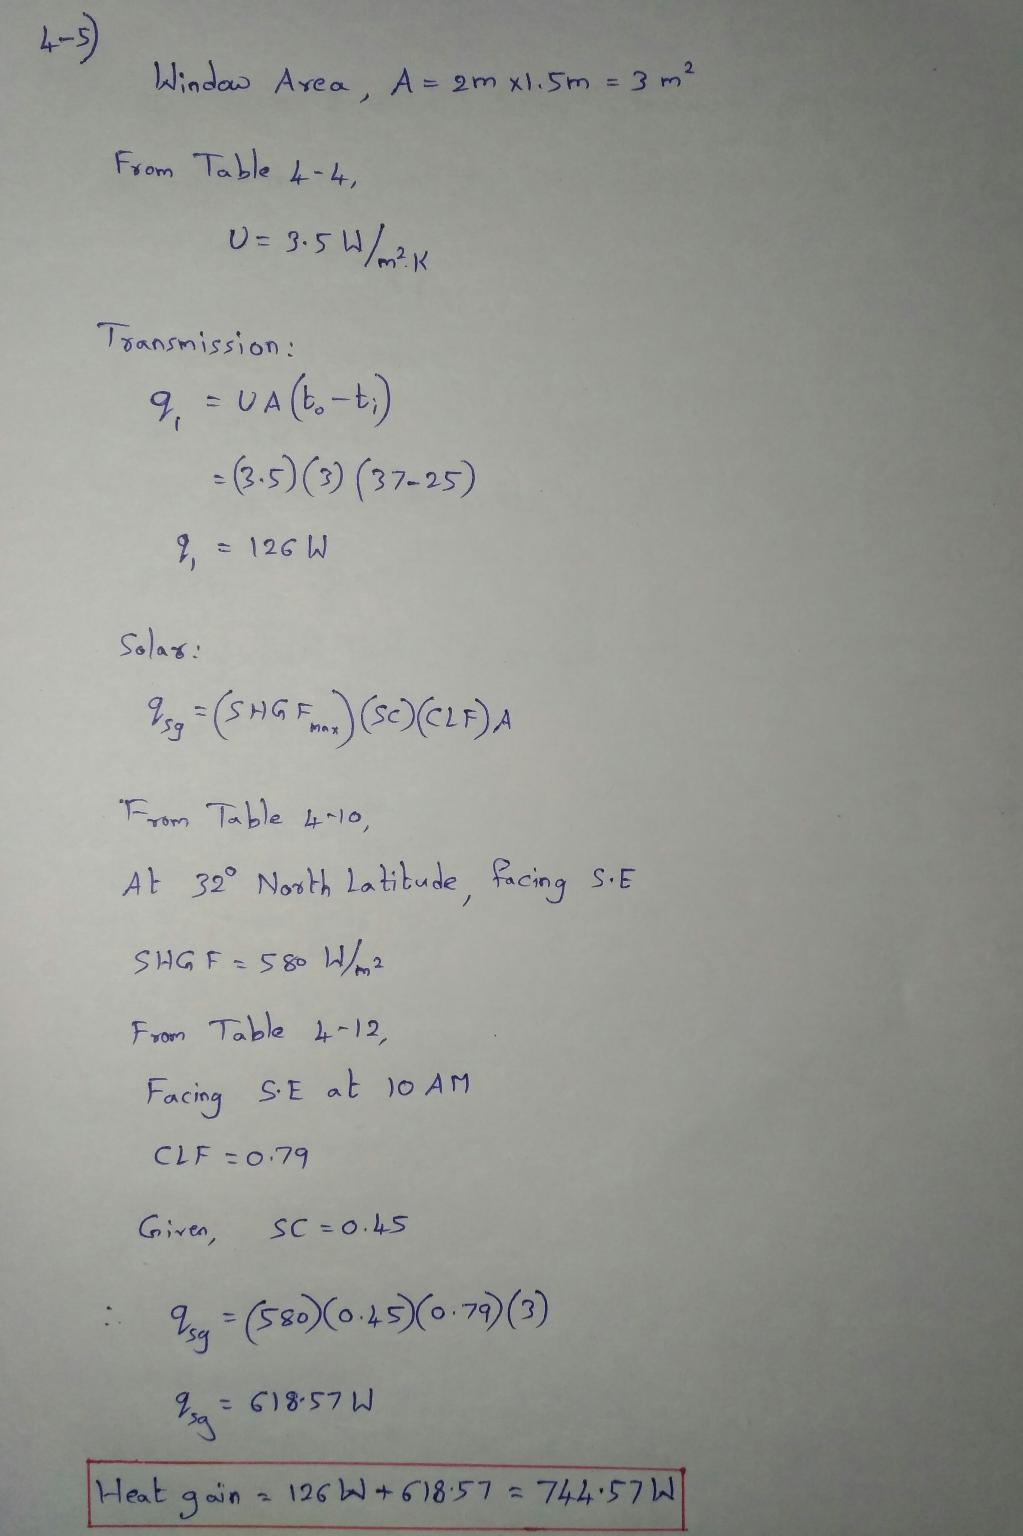 4-5)
Window Area, A = 2m x1.5m = 3 m²
From Table 4-4,
U = 3.5 W/m².K
Transmission:
q₁ = UA(t₀-tᵢ)
=(3.5)(3)(37-25)
q₁ = 126 W
Solar:
qsg = (SHGFmax)(SC)(CLF)A
From Table 4-10,
At 32° North Latitude, facing S.E
SHGF = 580 W/m²
From Table 4-12,
Facing S.E at 10 AM
CLF = 0.79
Given, SC = 0.45
∴ qsg = (580)(0.45)(0.79)(3)
qsg = 618.57 W
Heat gain = 126 W + 618.57 = 744.57 W